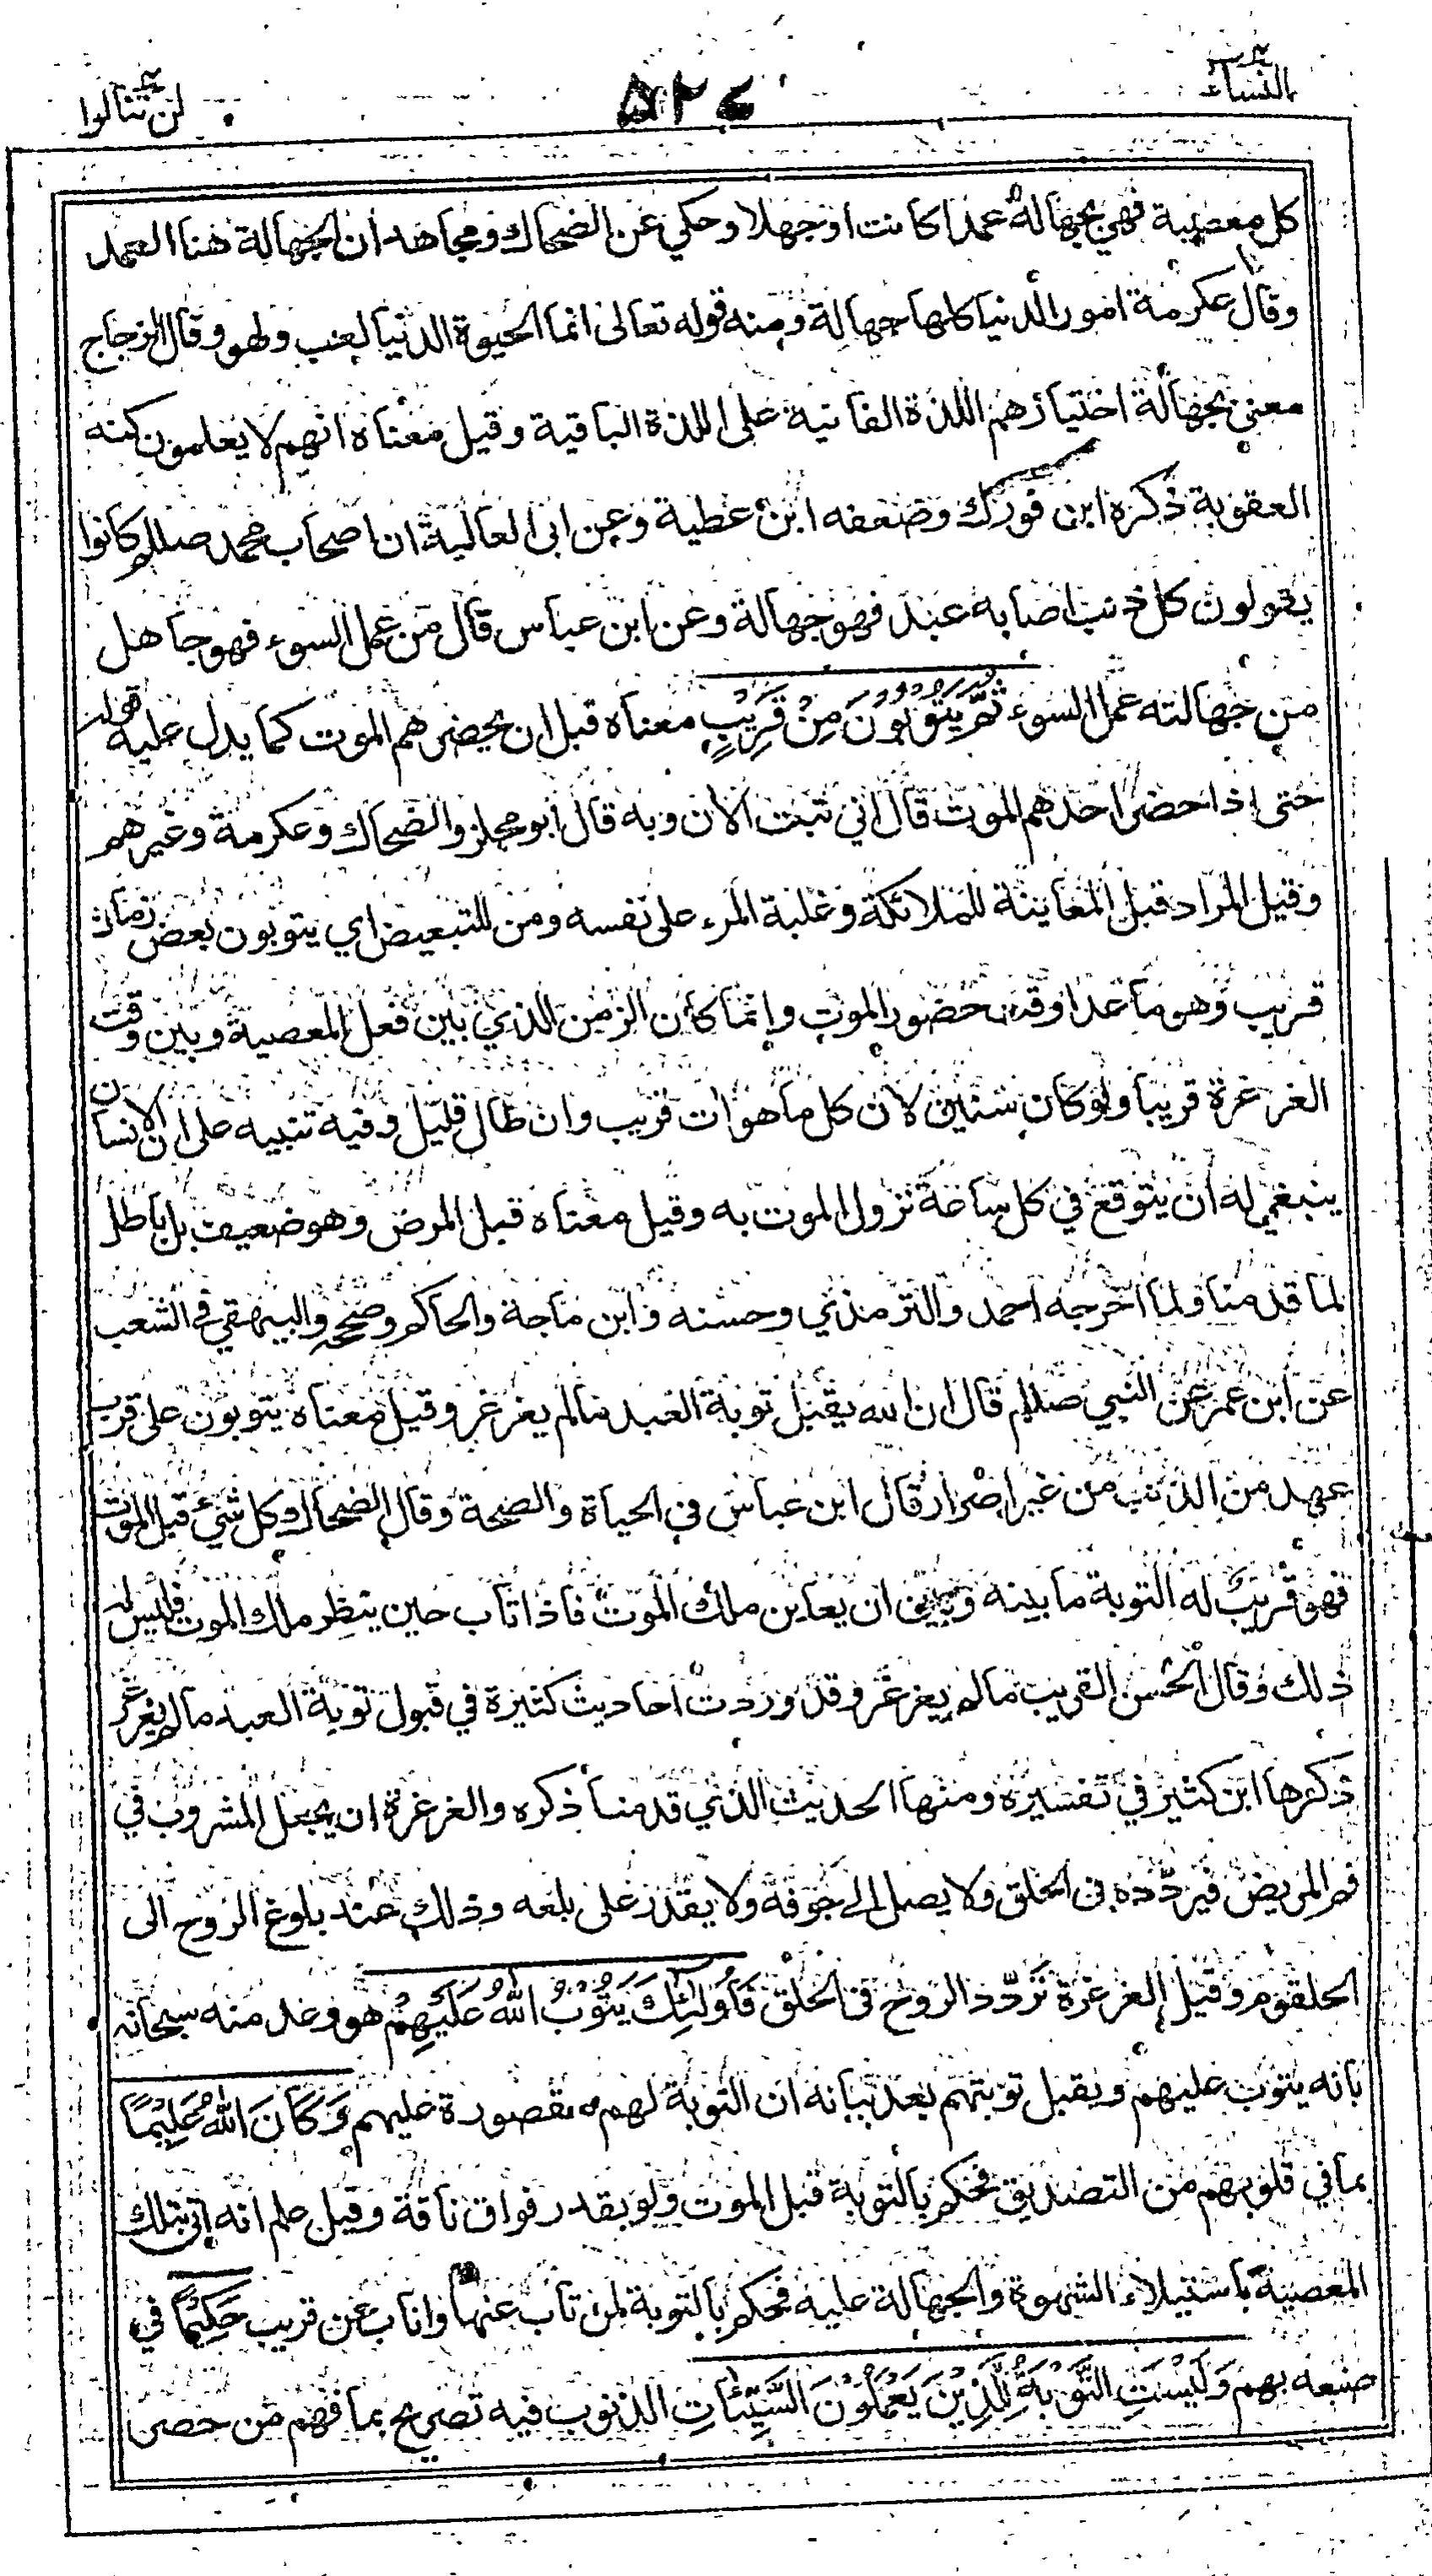 النساء
٥٢٤
لن تنالوا
كل معصية فهي بجهالة عمدا كانت اوجهلا وحكي عن الضحاك ومجاهد ان الجهالة هنا العمد
وقال عكرمة امور الدنيا كلها جهالة ومنه قوله تعالى انما الحيوة الدنيا لعب ولهو وقال الزجاج
معنى بجهالة اختيارهم اللذة الفانية على اللذة الباقية وقيل معناه انهم لا يعلمون كنه
العقوبة ذكره ابن فورك وضعفه ابن عطية وعن ابي العالية ان اصحاب محمد صللم كانوا
يقولون كل ذنب اصابه عبد فهو جهالة وعن ابن عباس قال من عمل السوء فهو جاهل
من جهالته عمل السوء ثُمَّ يَتُوبُونَ مِنْ قَرِيبٍ معناه قبل ان يحضرهم الموت كما يدل عليه قوله
حتى اذا حضر احدهم الموت قال اني تبت الان وبه قال ابو مجلز والضحاك وعكرمة وغيرهم
وقيل المراد قبل المعاينة للملائكة وغلبة المرء على نفسه ومن للتبعيض اي يتوبون بعض زمان
قريب وهو ما عدا وقت حضور الموت وانما كان الزمن الذي بين فعل المعصية وبين وقت
الغرغرة قريبا ولو كان سنين لان كل ما هوات قريب وان طال قليل وفيه تنبيه على ان الانسان
ينبغي له ان يتوقع في كل ساعة نزول الموت به وقيل معناه قبل المرض وهو ضعيف بل باطل
لما قدمنا ولما اخرجه احمد والترمذي وحسنه وابن ماجة والحاكم وصححه والبيهقي في الشعب
عن ابن عمر عن النبي صللم قال ان الله يقبل توبة العبد ما لم يغرغر وقيل معناه يتوبون على قرب
عهد من الذنب من غير اصرار قال ابن عباس في الحياة والصحة وقال الضحاك كل شيء قبل الموت
فهو قريب له التوبة ما بينه وبين ان يعاين ملك الموت فاذا تاب حين ينظر ملك الموت فليس له
ذلك وقال الحسن القريب ما لم يغرغر وقد وردت احاديث كثيرة في قبول توبة العبد ما لم يغرغر
ذكرها ابن كثير في تفسيره ومنها الحديث الذي قدمنا ذكره والغرغرة ان يجعل المشروب في
فم المريض فيردده في الحلق ولا يصل الى جوفه ولا يقدر على بلعه وذلك عند بلوغ الروح الى
الحلقوم وقيل الغرغرة تردد الروح في الحلق فَأُولٰئِكَ يَتُوبُ اللهُ عَلَيْهِمْ هو وعد منه سبحانه
بانه يتوب عليهم ويقبل توبتهم بعد بيانه ان التوبة لهم مقصورة عليهم وَكَانَ اللهُ عَلِيْمًا
بما في قلوبهم من التصديق فحكم بالتوبة قبل الموت ولو بقدر فواق ناقة وقيل علم انه اتى بتلك
المعصية باستيلاء الشهوة والجهالة عليه فحكم بالتوبة لمن تاب عنها واناب عن قريب حَكِيْمًا في
صنعه بهم وَلَيْسَتِ التَّوْبَةُ لِلَّذِيْنَ يَعْمَلُوْنَ السَّيِّئَاتِ الذنوب فيه تصريح بما فهم من حصر